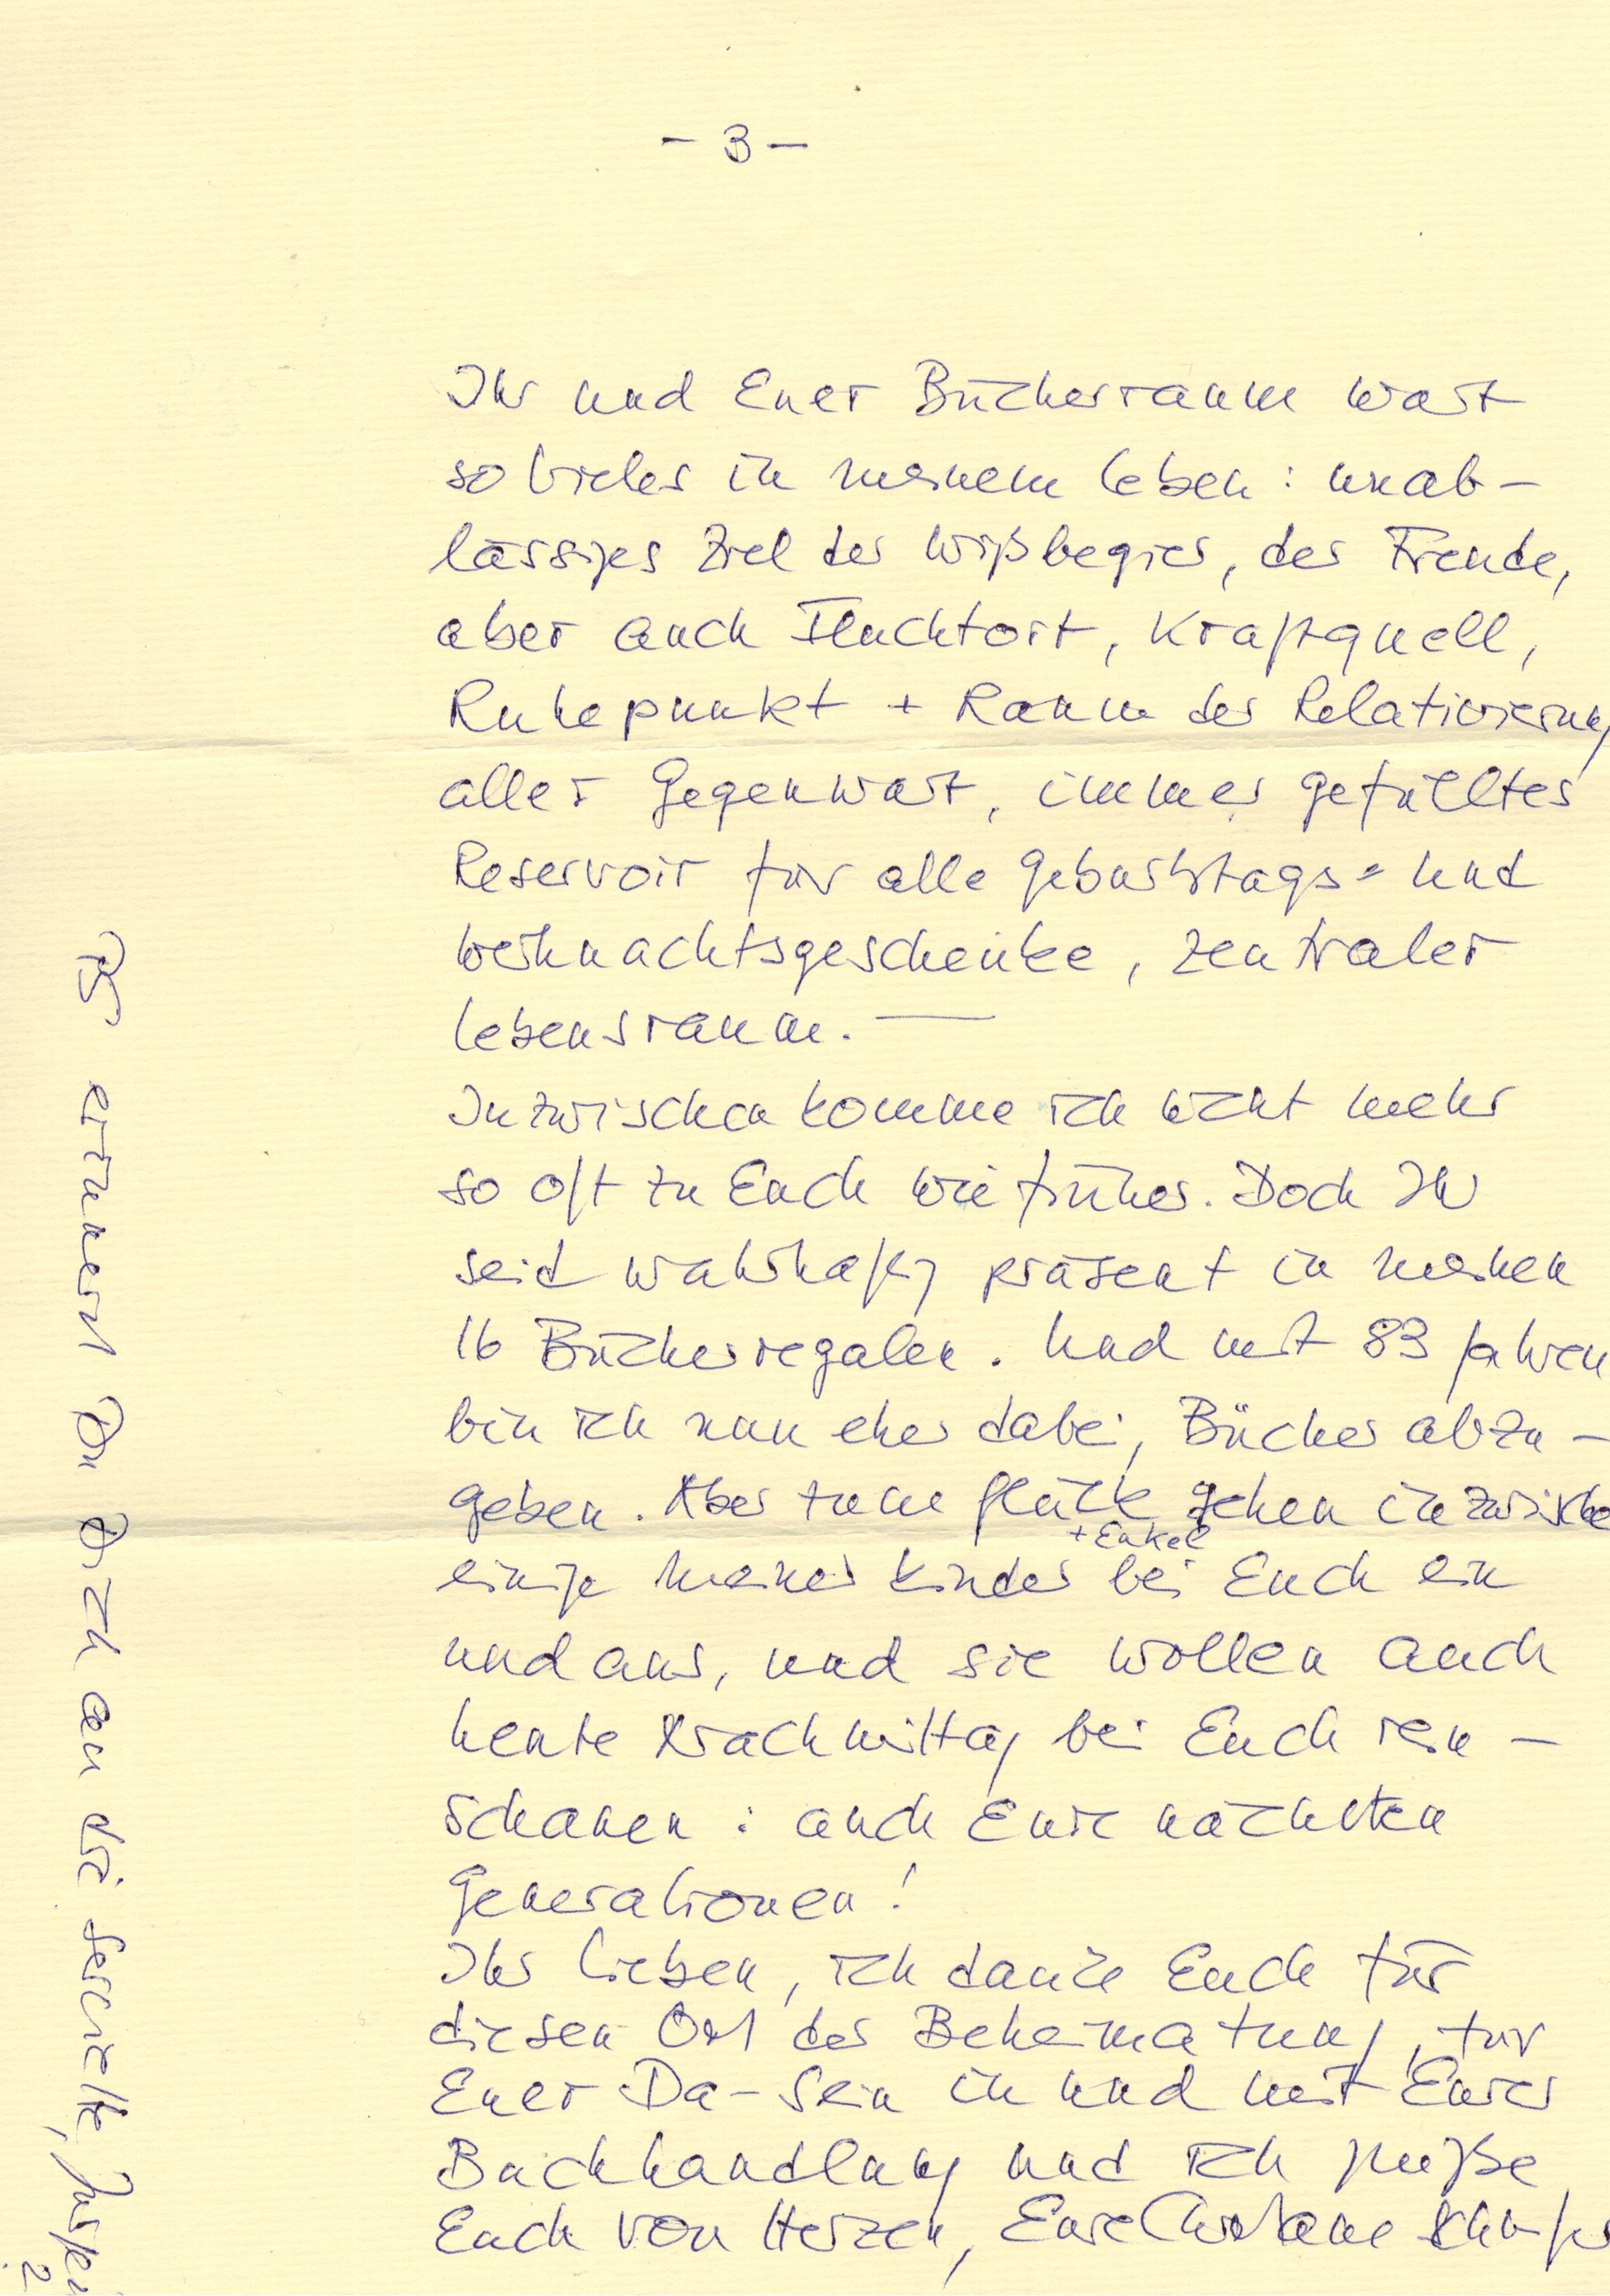 - 3 -
Ihr und Euer Bücherraum wart
so vieles in meinem Leben: unab-
lässiges Ziel der Wißbegier, der Freude,
aber auch Fluchtort, Kraftquell,
Ruhepunkt + Raum der Relativierung
aller Gegenwart, immer gefülltes
Reservoir für alle Geburtstags- und
Weihnachtsgeschenke, zentraler
Lebensraum. —
Inzwischen komme ich nicht mehr
so oft zu Euch wie früher. Doch Ihr
seid wahrhaftig präsent in meinen
16 Bücherregalen. Und mit 83 Jahren
bin ich nun eher dabei, Bücher abzu-
geben. Aber zum Glück gehen inzwische
+ Enkel
einige meiner Kinder bei Euch ein
und aus, und sie wollen auch
heute Nachmittag bei Euch rein-
schauen: auch Eure nächsten
Generationen!
Ihr Lieben, ich danke Euch für
diesen Ort der Beheimatung, für
Euer Da-Sein in und mit Eurer
Buchhandlung und ich grüße
Euch von Herzen, Eure Christiane
PS erinnerst Du Dich an die